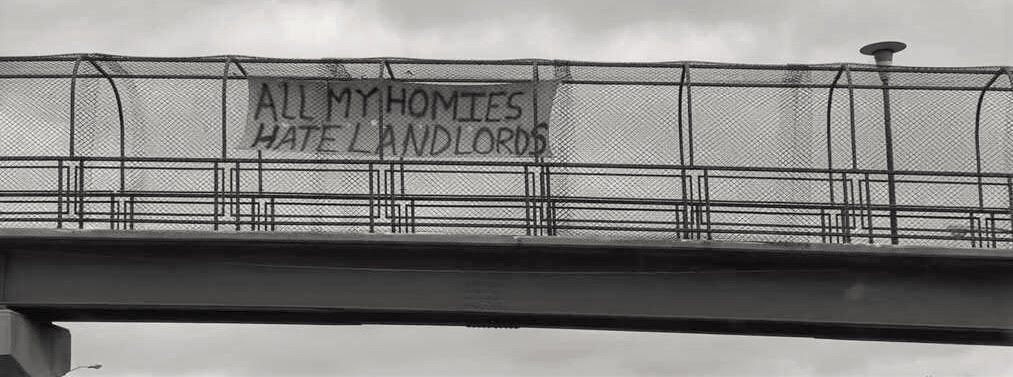 ALL MY HOMIES
HATE LANDLORDS